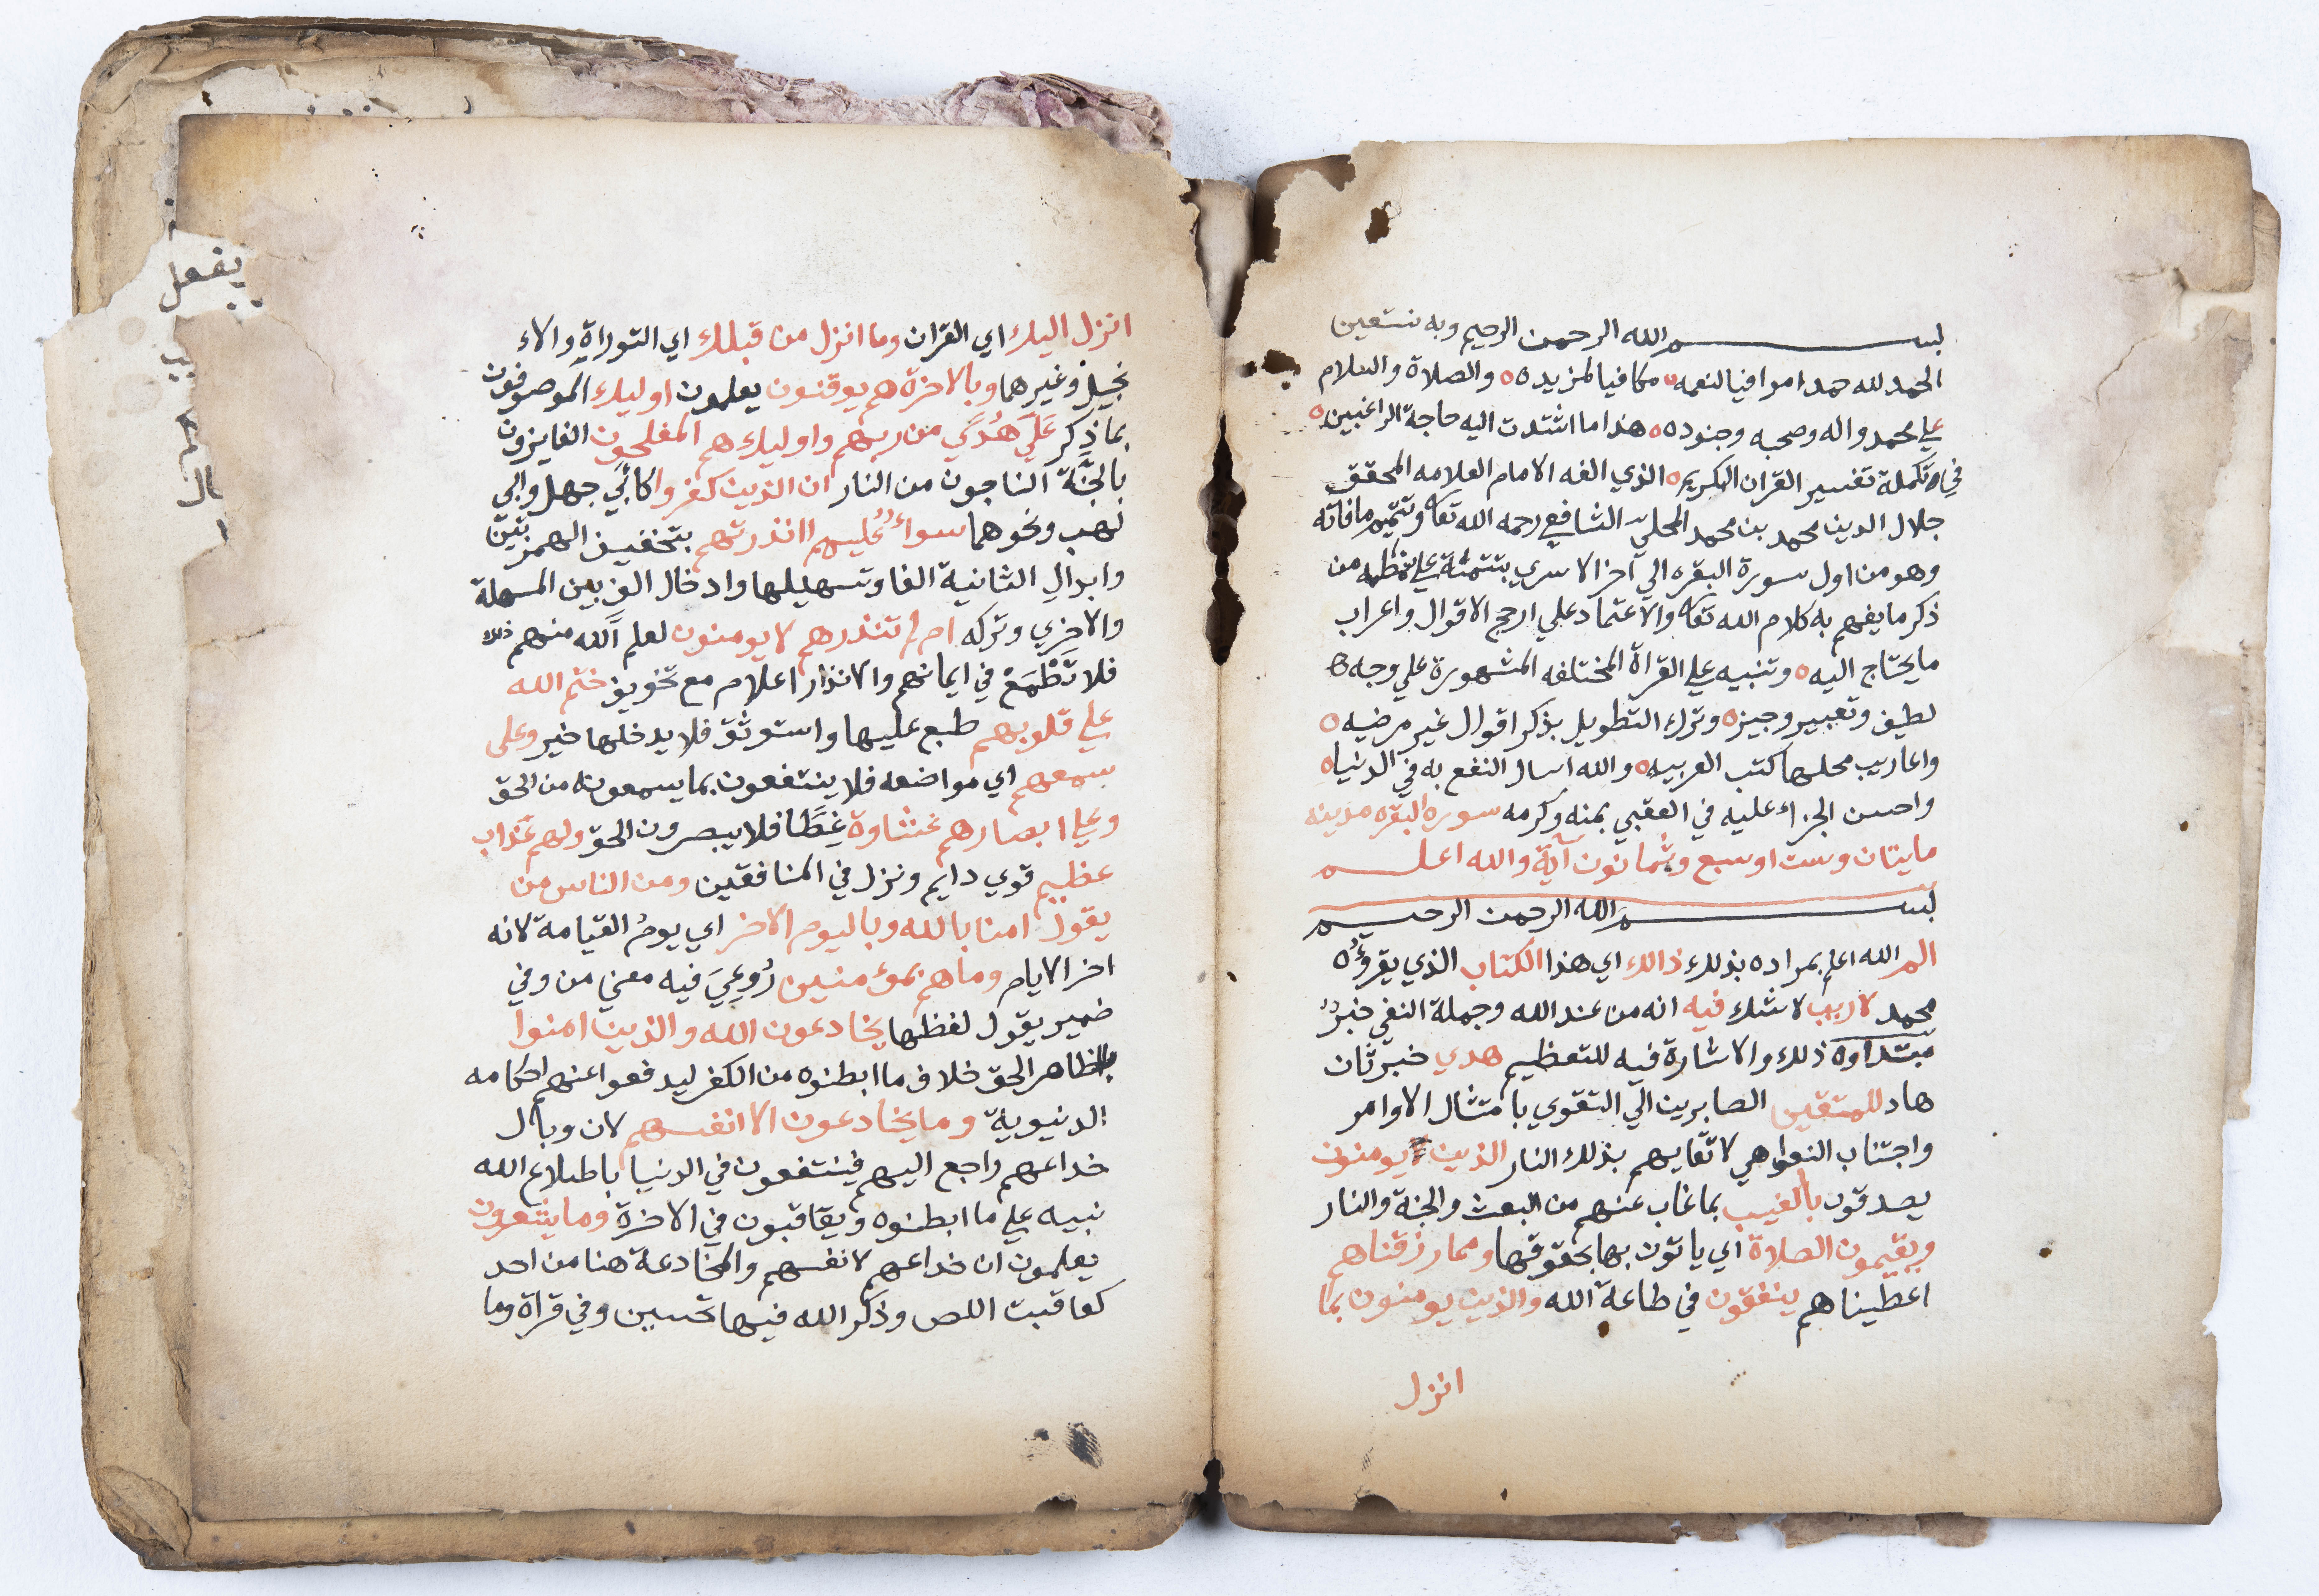 بسم الله الرحمن الرحيم وبه نستعين
الحمد لله حمدا موافيا لنعمه مكافيا لمزيده والصلاة والسلام
علي محمد واله وصحبه وجنوده هذا ما اشتدت اليه حاجة الراغبين
في تكملة تفسير القران الكريم الذي الفه الامام العلامه المحقق
جلال الدين محمد بن محمد المحليّ الشافعي رحمه الله تعا وتتميم ما فاته
وهو من اول سورة البقره الي اخر الاسري بتتمة علي نمطه من
ذكر ما يفهم به كلام الله تعا والاعتماد علي ارجح الاقوال واعراب
ما يحتاج اليه وتنبيه علي القراة المختلفه المشهورة علي وجه
لطيف وتعبير وجيز وترك التطويل بذكر اقوال غير مرضيه
واعاريب محلها كتب العربيه والله اسال النفع به في الدنيا
واحسن الجزاء عليه في العقبي بمنه وكرمه سورة البقره مدينه
مايتان وست اوسبع وثمانون آية والله اعلم
بسم الله الرحمن الرحيم
الم الله اعلم بمراده بذلك ذالك اي هذا الكتاب الذي يقرؤه
محمد لا ريب لا شك فيه انه من عند الله وجملة النفي خبرٌ
مبتداوه ذلك والاشارة فيه للتعظيم هدي خبر ثان
هاد للمتقين الصابرين الي التقوي بامتثال الاوامر
واجتناب النواهي لاتقايهم بذلك النار الذين يومنون
يصدقون بالغيب بما غاب عنهم من البعث والجنة والنار
ويقيمون الصلاة اي ياتون بها بحقوقها ومما رزقناهم
اعطيناهم ينفقون في طاعة الله والذين يومنون بما
انزل
انزل اليك اي القران وما انزل من قبلك اي التوراة والا
نجيل وغيرهما وبالاخرة هم يوقنون يعلمون اوليك الموصوفون
بما ذكر عَلَي هُدَي من ربهم واوليك هم المفلحون الفايزون
بالجَنَّة الناجون من النار ان الذين كفروا كابي جهل وابي
لهب ونحوهما سواء عليهم اانذرتهم بتخفيف الهمزتين
وابدال الثانية الفا وتسهيلها وادخال الف بين المسهلة
والاخري وتركه ام لم تنذرهم لا يومنون لعلم الله منهم ذلك
فلا تَطْمَعْ في ايمانهم والانذار اعلام مع تخويف ختم الله
علي قلوبهم طبع عليها واستوثق فلا يدخلها خير وعلى
سمعهم اي مواضعه فلا ينتفعون بما يسمعونه من الحق
وعلي ابصارهم غشاوة غِطَا فلا يبصرون الحق ولهم عذاب
عظيم قوي دايم ونزل في المنافقين ومن الناس من
يقول امنا بالله وباليوم الاخر اي يوم القيامة لانه
اخر الايام وما هم بمؤمنين رُوعِيَ فيه معني من وفي
ضمير يقول لفظها يخادعون الله والذين امنوا
بالظاهر الحق خلاف ما ابطنوه من الكفر ليدفعوا عنهم احكامه
الدنيوية وما يخادعون الا انفسهم لان وبال
خداعهم راجع اليهم فينتفعون في الدنيا باطلاع الله
نبيه علي ما ابطنوه ويعاقبون في الاخرة وما يشعرون
يعلمون ان خداعهم لانفسهم والمخادعة هنا من احد
كعاقبت اللص وذكر الله فيها تحسين وفي قراة وما
يفعل